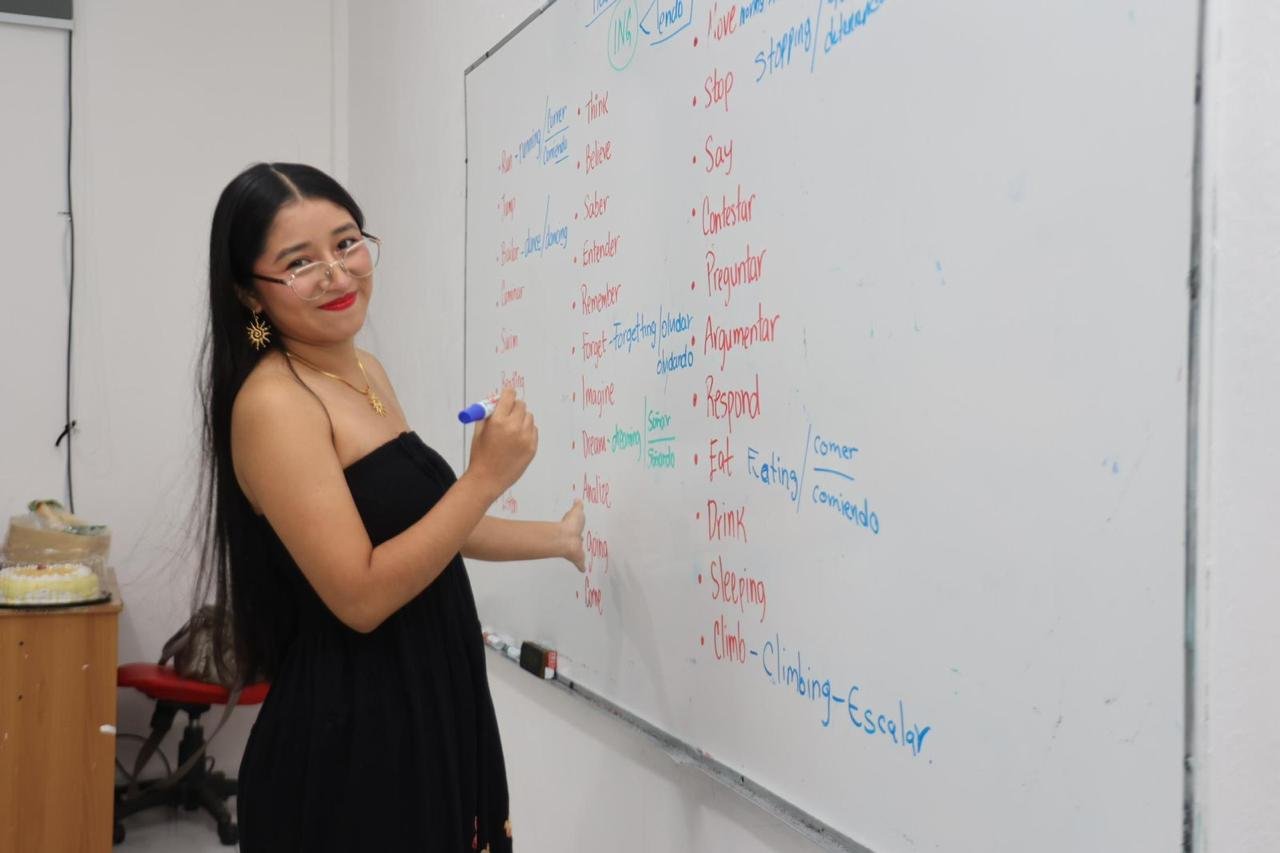 ING < iendo
• Run - running / correr
corriendo
• Jump
• Bailar - dance / dancing
• Caminar
• Swim
• Reading
• Think
• Believe
• Saber
• Entender
• Remember
• Forget - Forgetting / olvidar
olvidando
• Imagine
• Dream - dreaming / Soñar
Soñando
• Analize
• going
• Come
• Move
stopping /
• Stop
• Say
• Contestar
• Preguntar
• Argumentar
• Respond
• Eat Eating / comer
comiendo
• Drink
• Sleeping
• Climb - Climbing - Escalar